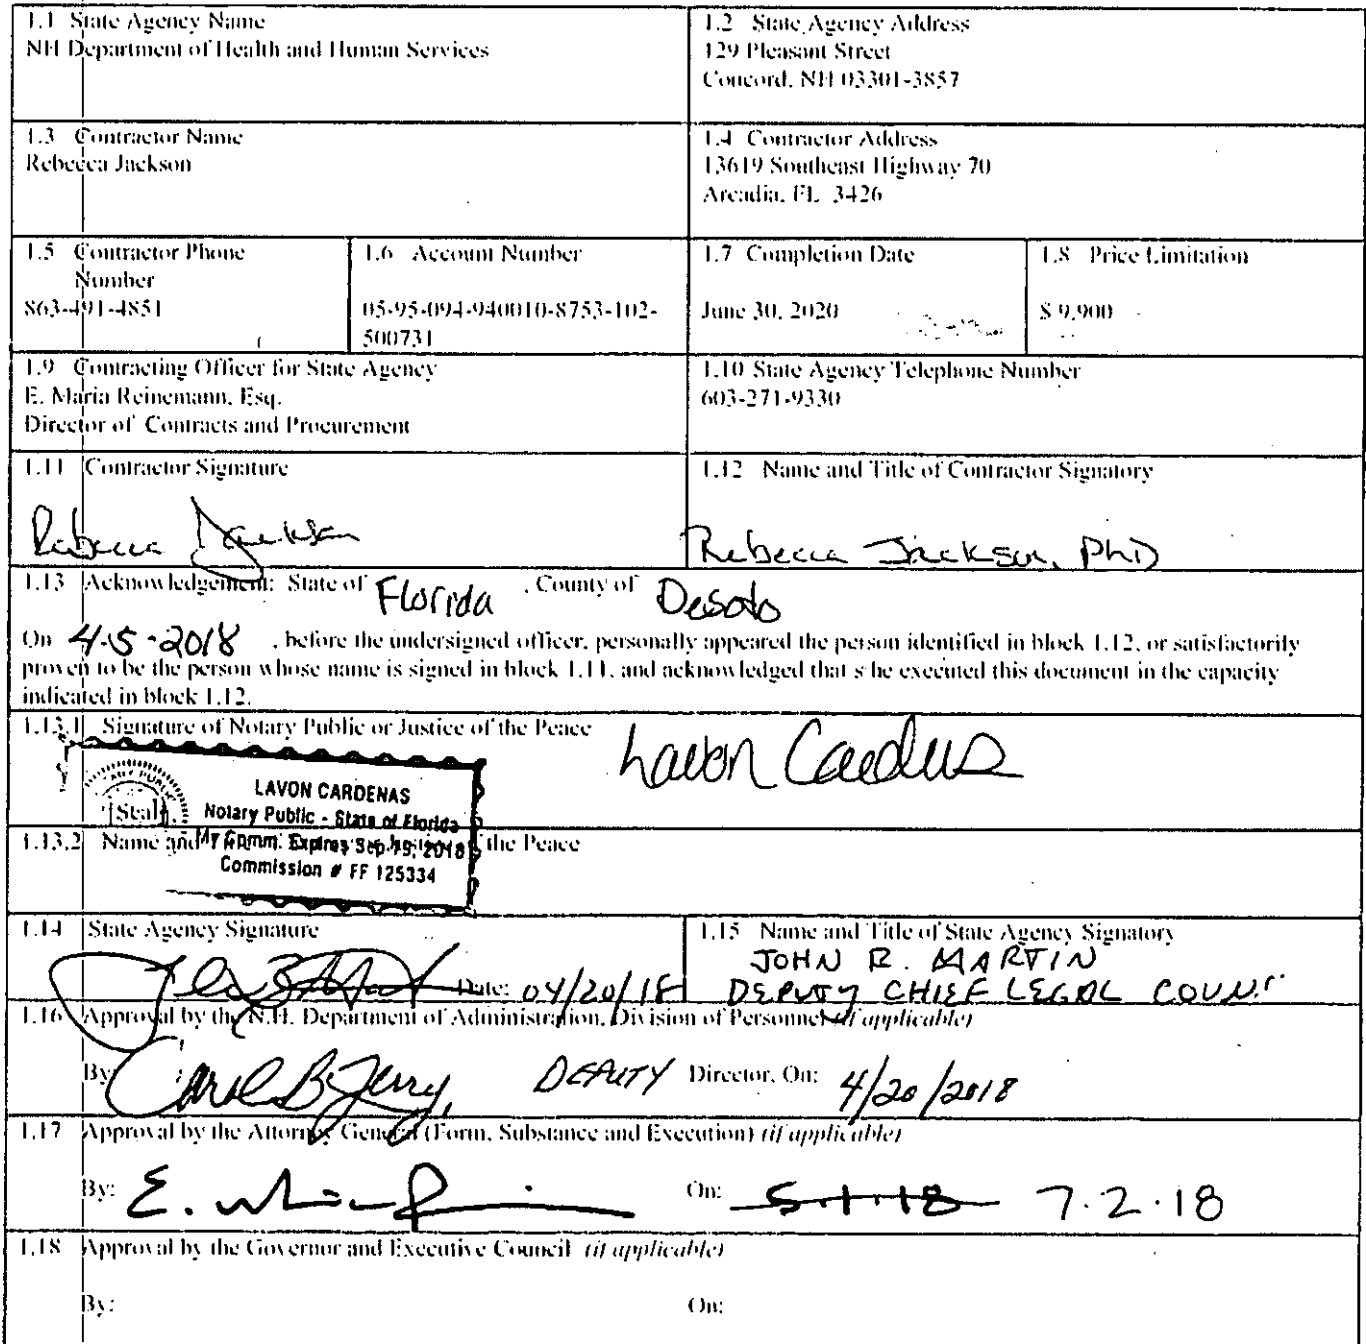 1.1 State Agency Name
NH Department of Health and Human Services
1.2 State Agency Address
129 Pleasant Street
Concord, NH 03301-3857
1.3 Contractor Name
Rebecca Jackson
1.4 Contractor Address
13619 Southeast Highway 70
Arcadia, FL 3426
1.5 Contractor Phone
Number
863-491-4851
1.6 Account Number
05-95-094-940010-8753-102-
500731
1.7 Completion Date
June 30, 2020
1.8 Price Limitation
$ 9,900
1.9 Contracting Officer for State Agency
E. Maria Reinemann, Esq.
Director of Contracts and Procurement
1.10 State Agency Telephone Number
603-271-9330
1.11 Contractor Signature
Rebecca Jackson
1.12 Name and Title of Contractor Signatory
Rebecca Jackson, PhD
1.13 Acknowledgement: State of Florida , County of Desoto
On 4-5-2018 , before the undersigned officer, personally appeared the person identified in block 1.12, or satisfactorily
proven to be the person whose name is signed in block 1.11, and acknowledged that s/he executed this document in the capacity
indicated in block 1.12.
1.13.1 Signature of Notary Public or Justice of the Peace
Lavon Cardenas
[Seal]
LAVON CARDENAS
Notary Public - State of Florida
My Comm. Expires Sep 15, 2018
Commission # FF 125334
1.13.2 Name and the Peace
1.14 State Agency Signature
Date: 04/20/18
1.15 Name and Title of State Agency Signatory
JOHN R. MARTIN
DEPUTY CHIEF LEGAL
1.16 Approval by the N.H. Department of Administration, Division of Personnel (if applicable)
By: DEPUTY Director, On: 4/20/2018
1.17 Approval by the Attorney General (Form, Substance and Execution) (if applicable)
By: On: 5.1.18 7.2.18
1.18 Approval by the Governor and Executive Council (if applicable)
By: On: